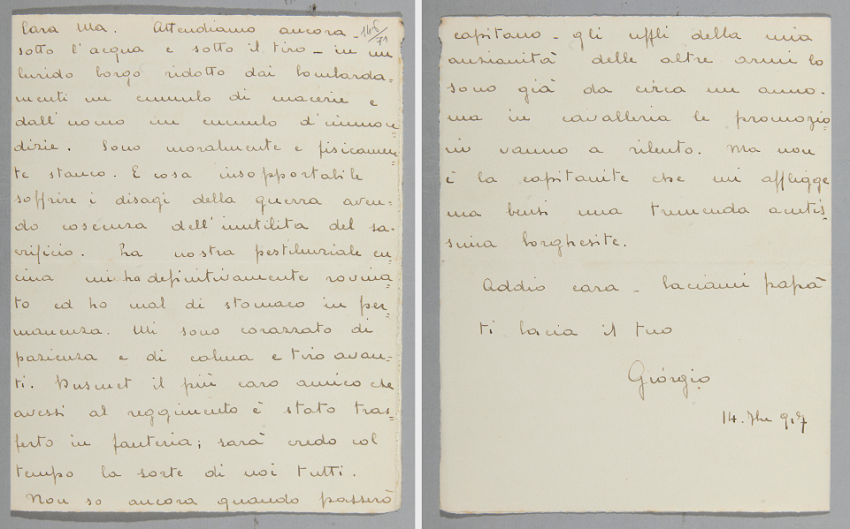 Cara Ma. Attendiamo ancora -
sotto l'acqua e sotto il tiro - in un
lurido borgo ridotto dai bombarda=
menti un cumulo di macerie e
dall'uomo un cumulo d'immon=
dizie. Sono moralmente e fisicamen=
te stanco. È cosa insopportabile
soffrire i disagi della guerra aven=
do coscienza dell'inutilità del sa=
crificio. La nostra pestilenziale cu=
cina mi ha definitivamente rovina=
to ed ho mal di stomaco in per=
manenza. Mi sono corazzato di
pazienza e di calma e tiro avan=
ti. Dusmet il più caro amico che
avessi al reggimento è stato tras=
ferto in fanteria; sarà credo col
tempo la sorte di noi tutti.
Non so ancora quando passerò
capitano - gli uffli della mia
anzianità delle altre armi lo
sono già da circa un anno.
ma in cavalleria le promozio=
ni vanno a rilento. Ma non
è la capitanite che mi affligge
ma bensì una tremenda acutis=
sima borghesite.
Addio cara - baciami papà
ti bacia il tuo
Giorgio
14. 917